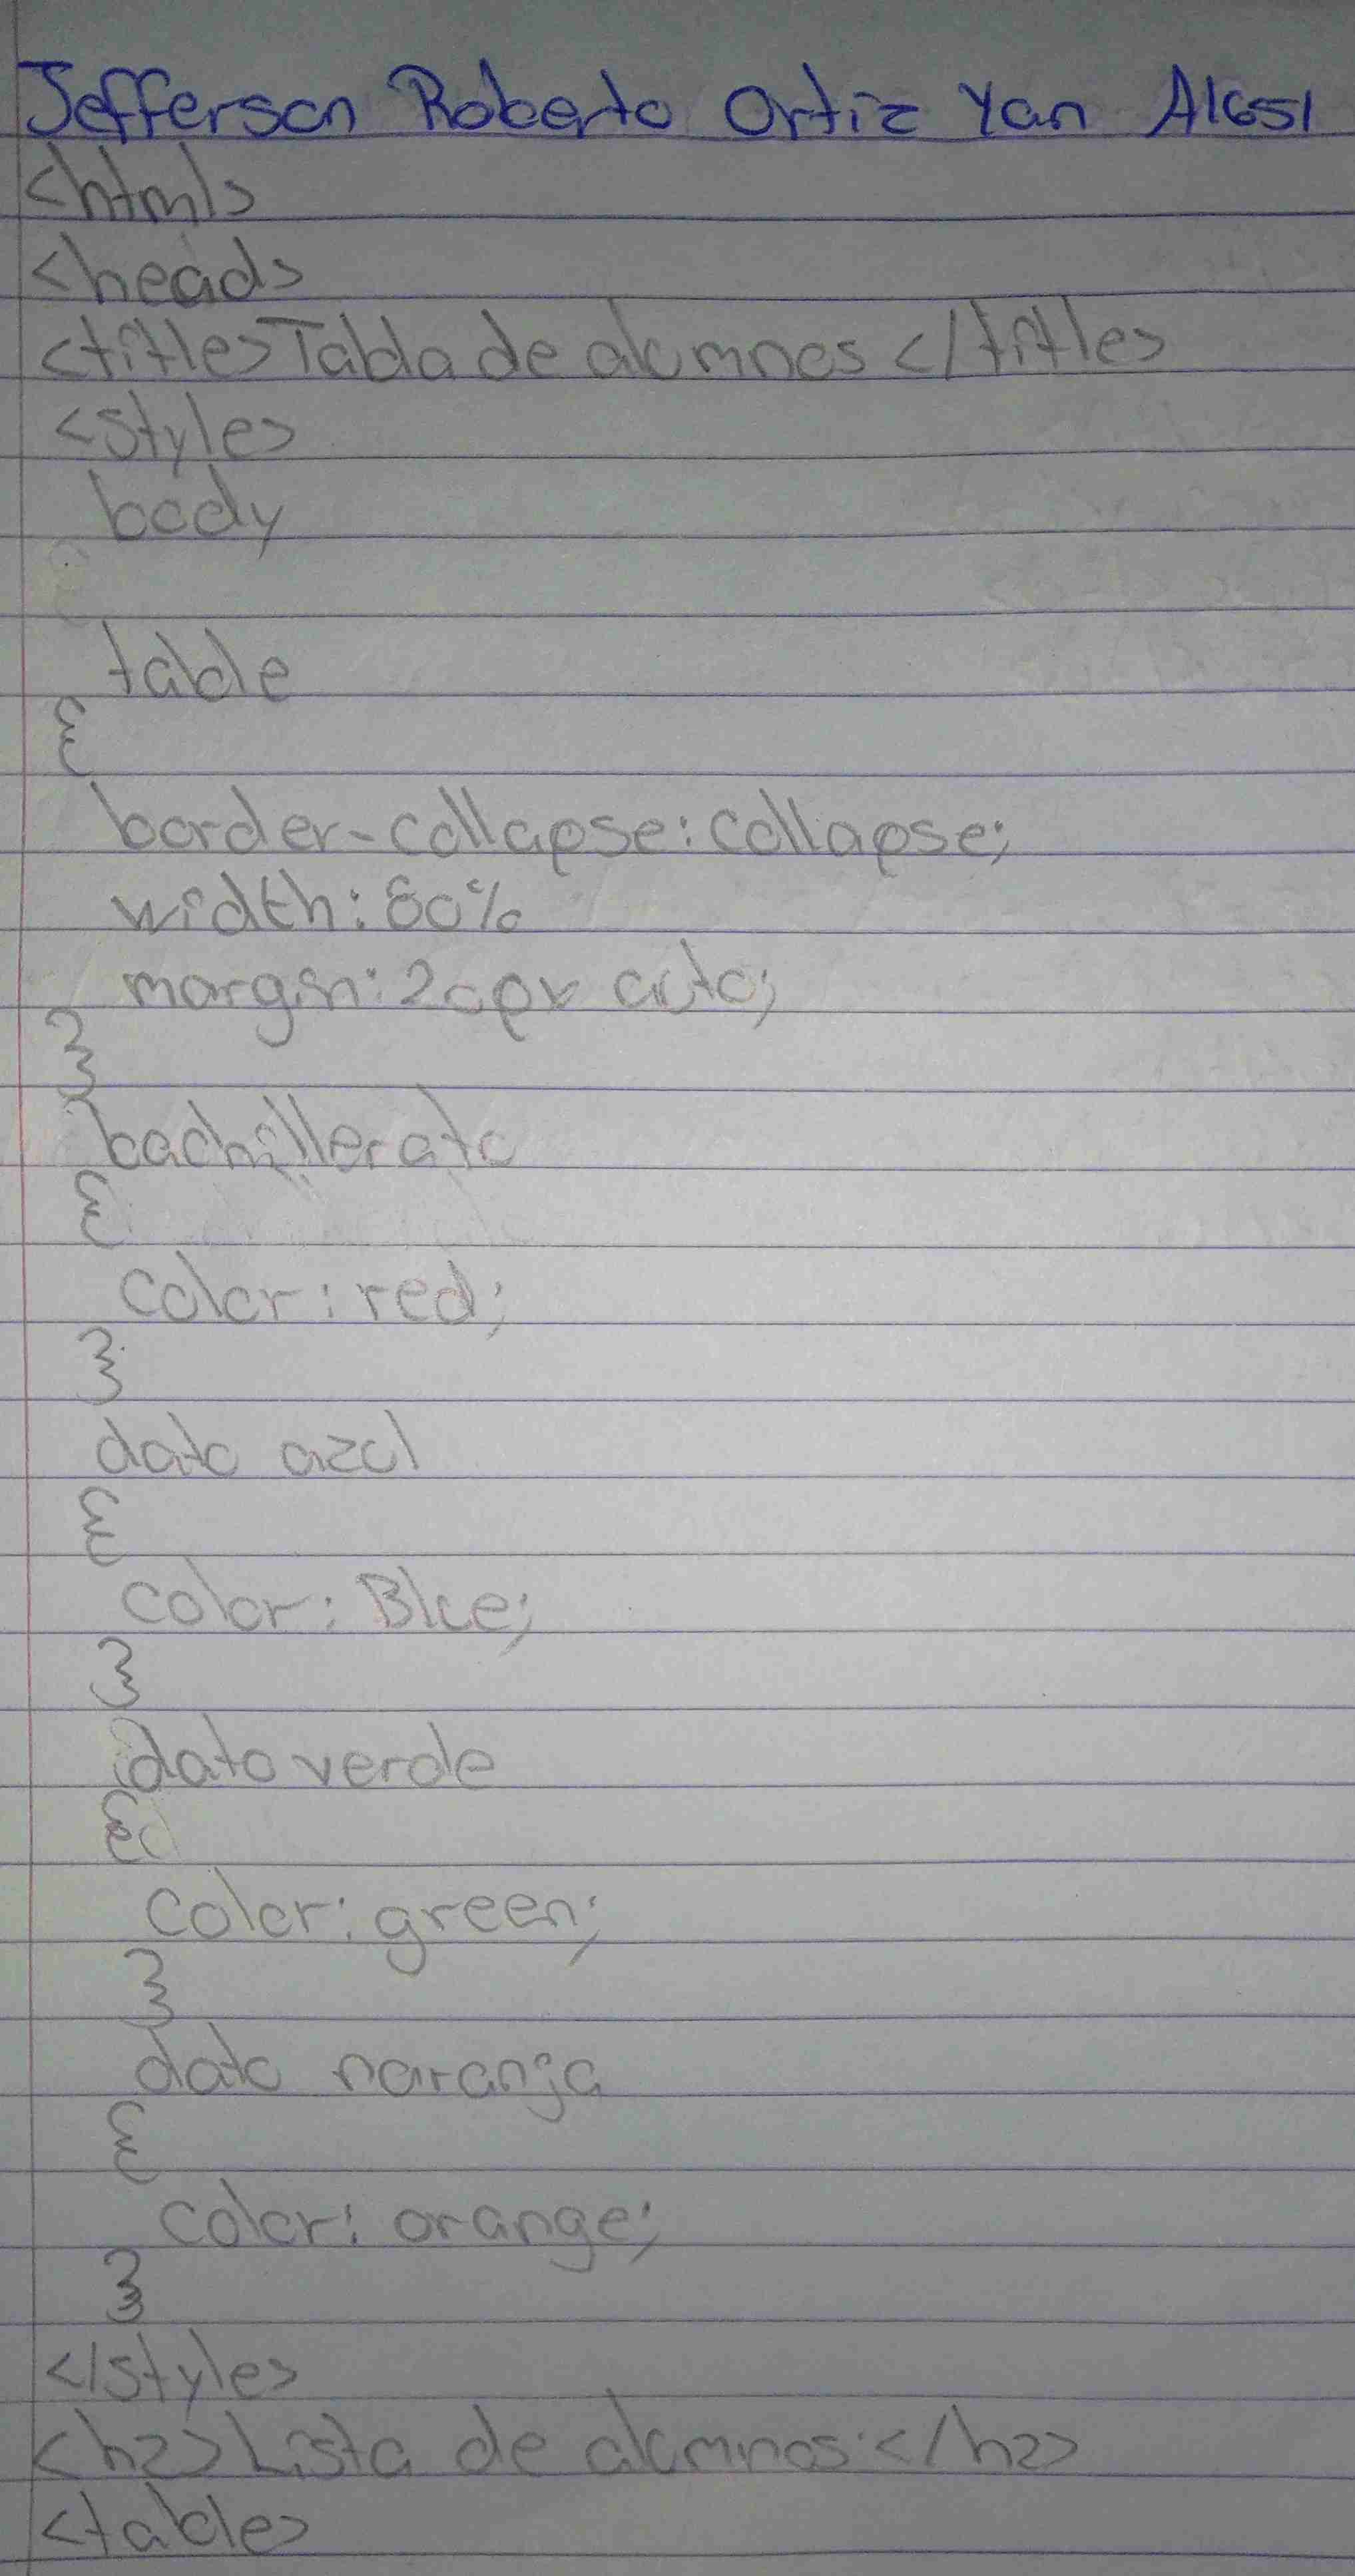 Jefferson Roberto Ortiz Yan A1651
<html>
<head>
<title>Tabla de alumnos </title>
<style>
body
table
{
border-collapse:collapse;
width:80%
margin:20px auto;
}
bachillerato
{
color:red;
}
dato azul
{
color: Blue;
}
dato verde
{
color:green;
}
dato naranja
{
color: orange;
}
</style>
<h2>Lista de alumnos:</h2>
<table>